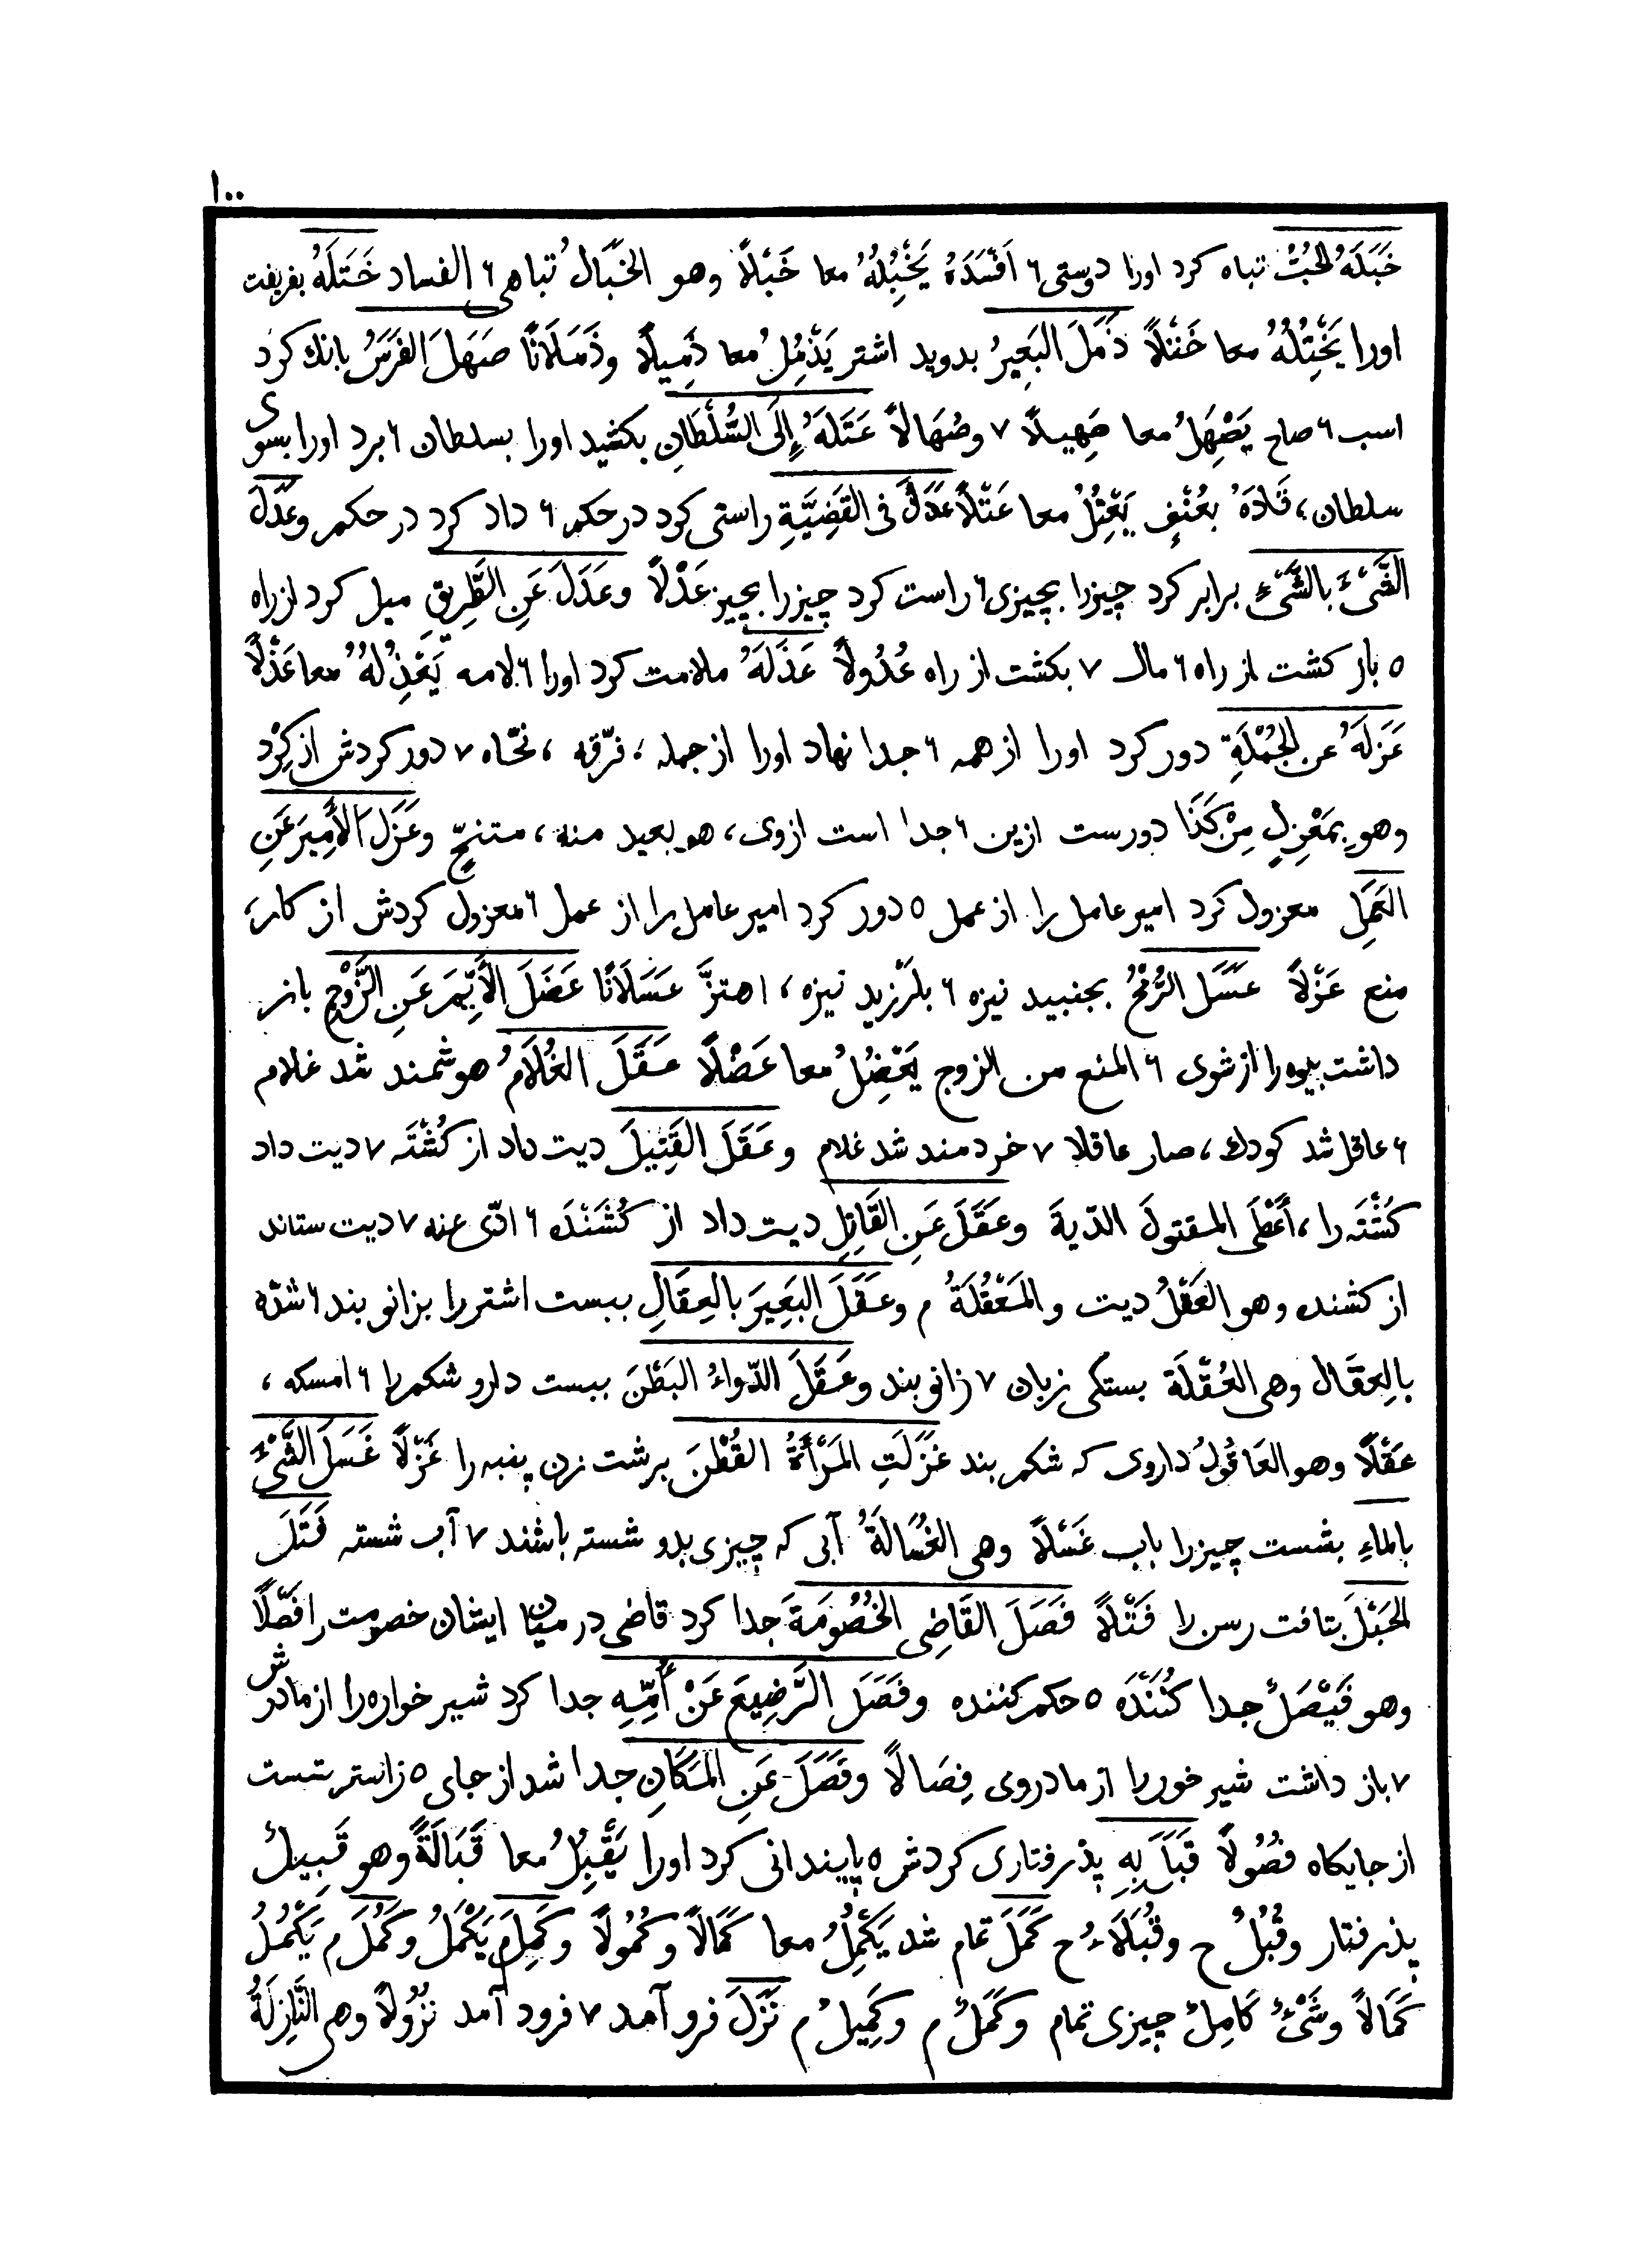 ١٠٠
خَبَلَهُ الحُبُّ تباه کرد اورا دوستی ۶ اَفْسَدَهُ یَخْبِلُهُ معا خَبْلاً وهو الخَبَالُ تباهی ۶ الفساد خَتَلَهُ بفریفت
اورا یَخْتِلُهُ معا خَتْلاً ذَمَلَ البَعِیرُ بدوید اشتر یَذْمِلُ معا ذَمِیلًا وذَمَلَانًا صَهَلَ الفَرَسُ بانك کرد
اسب ۶ صاح یَصْهِلُ معا صَهِیلًا ۷ وصُهَالاً عَتَلَهُ إِلَى السُّلْطَانِ بکشید اورا بسلطان ۶ برد اورا بسوی
سلطان، قَادَهُ بعُنْفٍ یَعْتِلُ معا عَتْلاً عَدَلَ فی القَضِیَّةِ راستی کرد در حکم ۶ داد کرد در حکم وعَدَلَ
الشَّیْءَ بالشَّیْءِ برابر کرد چیزرا بچیزی ۶ راست کرد چیزرا بچیز عَدْلاً وعَدَلَ عَنِ الطَّرِیقِ میل کرد از راه
۵ باز کشت از راه ۶ مال ۷ بکشت از راه عُدُولاً عَذَلَهُ ملامت کرد اورا ۶ لامه یَعْذِلُهُ معا عَذْلاً
عَزَلَهُ عن الجُمْلَةِ دور کرد اورا از همه ۶ جدا نهاد اورا از جمله، فرّقه، نحّاه ۷ دور کردش از کِرْد
وهو بِمَعْزِلٍ مِنْ کَذَا دورست ازین ۶ جدا است ازوی، هو بعید منه، متنحٍّ وعَزَلَ الأَمِیرَ عَنِ
العَمَلِ معزول کرد امیر عامل را از عمل ۵ دور کرد امیر عامل را از عمل ۶ معزول کردش از کار،
منع عَزْلاً عَسَلَ الرُّمْحُ بجنبید نیزه ۶ بلرزید نیزه، اهتزَّ عَسَلَانًا عَضَلَ الأَیِّمَ عَنِ الزَّوْجِ باز
داشت بیوه را از شوی ۶ المنع من الزوج یَعْضِلُ معا عَضْلًا عَقَلَ الغُلَامُ هوشمند شد غلام
۶ عاقل شد کودك، صار عاقلا ۷ خردمند شد غلام وعَقَلَ القَتِیلَ دیت داد از کُشْتَه ۷ دیت داد
کُشْتَه را، أَعْطَى المقتولَ الدّیةَ وعَقَلَ عَنِ القَاتِلِ دیت داد از کُشَنْدَه ۶ ادّی عنه ۷ دیت ستاند
از کشنده وهو العَقْلُ دیت والمَعْقُلَةُ م وعَقَلَ البَعِیرَ بالعِقَالِ ببست اشتر را بزانو بند ۶ شدّه
بالعِقَال وهی العُقْلَة بستکی زبان ۷ زانو بند وعَقَلَ الدّواءُ البَطْنَ ببست دارو شکم را ۶ امسکه،
عَقْلًا وهو العَاقُولُ داروی که شکم بند غَزَلَتِ المَرْأَةُ القُطْنَ برشت زن پنبه را غَزْلًا غَسَلَ الشَّیْءَ
بالماءِ بشست چیز را باب غَسْلاً وهی الغُسَالَةُ آبی که چیزی بدو شسته باشند ۷ آب شسته فَتَلَ
الحَبْلَ بتافت رسن را فَتْلاً فَصَلَ القَاضِی الخُصُومَةَ جدا کرد قاضی در میان ایشان خصومت را فَصْلًا
وهو فَیْصَلٌ جدا کُنَنْدَه ۵ حکم کننده وفَصَلَ الرَّضِیعَ عَنْ أُمِّهِ جدا کرد شیر خواره را از مادرش
۷ باز داشت شیر خور را از مادر وی فِصَالاً وفَصَلَ عَنِ المَکَانِ جدا شد از جای ۵ زاستر شست
از جایکاه فُصُولاً قَبَلَ بِهِ پذرفتاری کردش ۵ پایندانی کرد اورا یَقْبِلُ معا قَبَالَةً وهو قَبِیلٌ
پذرفتار وقُبُلٌ ح وقُبَلَاءُ ح کَمَلَ تمام شد یَکْمِلُ معا کَمَالاً وکُمُولاً وکَمِلَ م یَکْمَلُ وکَمُلَ م یَکْمُلُ
کَمَالاً وشَیْءٌ کَامِلٌ چیزی تمام وکَمَلٌ م وکَمِیلٌ م نَزَلَ فرو آمد ۷ فرود آمد نزُولاً وهی النَّازِلَةُ